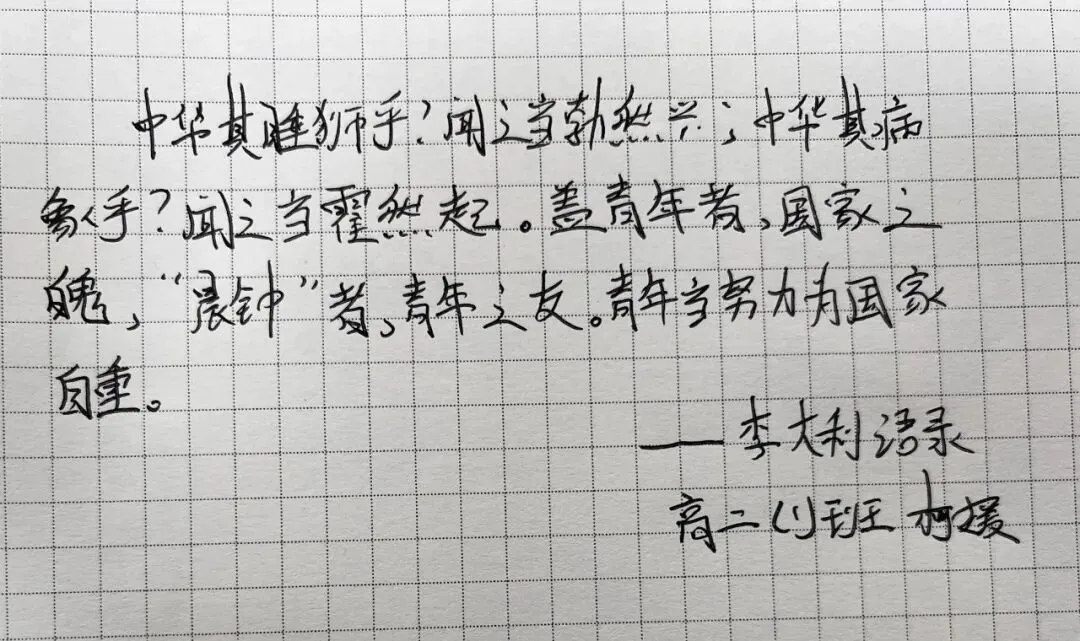 中华其睡狮乎?闻之当勃然兴;中华其病
象乎?闻之当霍然起。盖青年者,国家之
魄,“晨钟”者,青年之友。青年当努力为国家
自重。
——李大利语录
高二(1)班 柯援